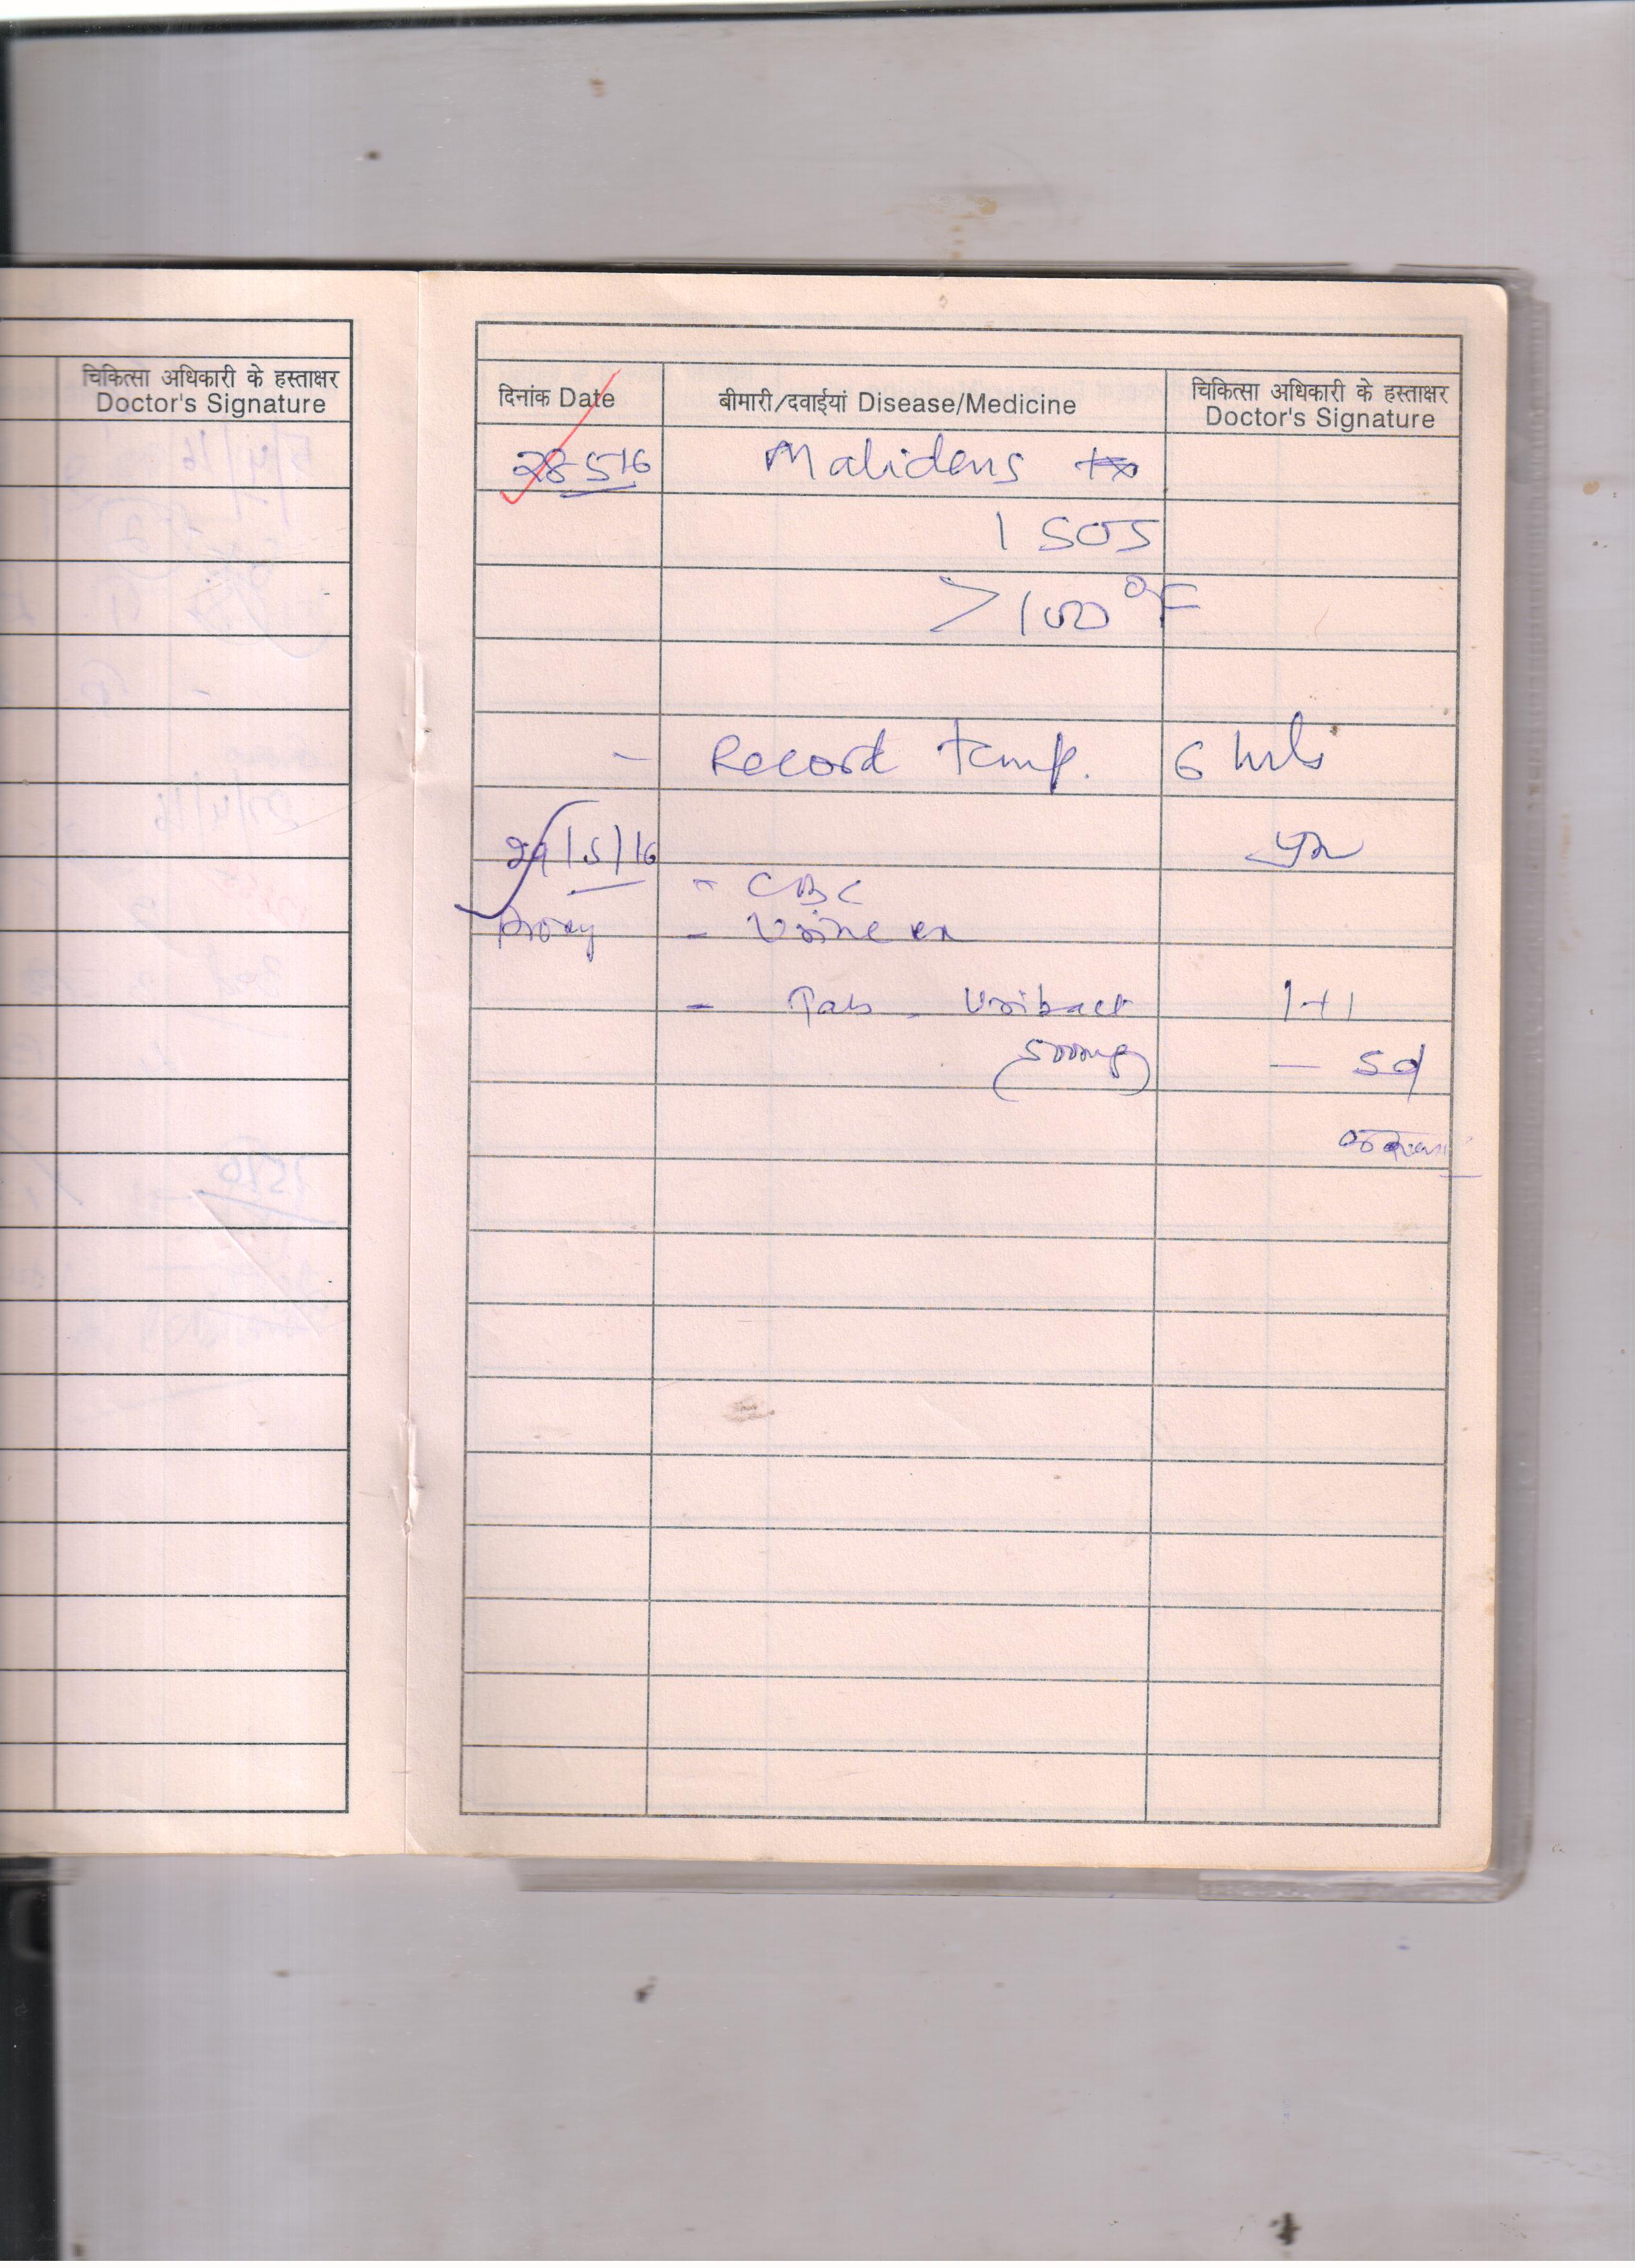 चिकित्सा अधिकारी के हस्ताक्षर
Doctor's Signature
दिनांक Date बीमारी/दवाईयां Disease/Medicine चिकित्सा अधिकारी के हस्ताक्षर
Doctor's Signature
28-5-16 Malidens
1 SOS
>100°F
- Record temp. 6 hrly
29/5/16
- CBC
Proxy - Urine
- Tab. Uribact 1+1
(500mg) - 5d